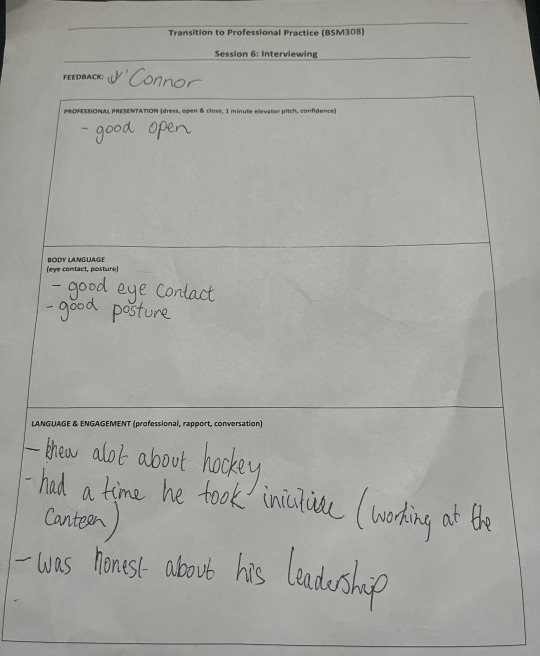 Transition to Professional Practice (BSM308)
Session 6: Interviewing
FEEDBACK: O'Connor
PROFESSIONAL PRESENTATION (dress, open & close, 1 minute elevator pitch, confidence)
- good open
BODY LANGUAGE
(eye contact, posture)
- good eye contact
- good posture
LANGUAGE & ENGAGEMENT (professional, rapport, conversation)
- knew alot about hockey
- had a time he took (working at the
canteen)
- was honest about his leadership
-